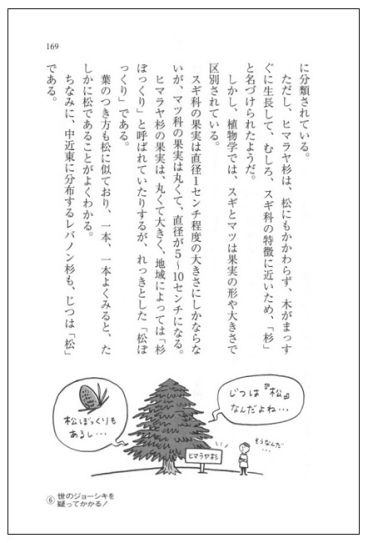 169
に分類されている。
ただし、ヒマラヤ杉は、松にもかかわらず、木がまっす
ぐに生長して、むしろ、スギ科の特徴に近いため、「杉」
と名づけられたようだ。
しかし、植物学では、スギとマツは果実の形や大きさで
区別されている。
スギ科の果実は直径1センチ程度の大きさにしかならな
いが、マツ科の果実は丸くて、直径が5〜10センチになる。
ヒマラヤ杉の果実は、丸くて大きく、地域によっては「杉
ぼっくり」と呼ばれていたりするが、れっきとした「松ぼ
っくり」である。
葉のつき方も松に似ており、一本、一本よくみると、た
しかに松であることがよくわかる。
ちなみに、中近東に分布するレバノン杉も、じつは「松」
である。
じつは『松』
なんだよね…
松ぼっくりも
あるし…
ヒマラヤ杉
そうなんだ…
⑥ 世のジョーシキを
疑ってかかる!